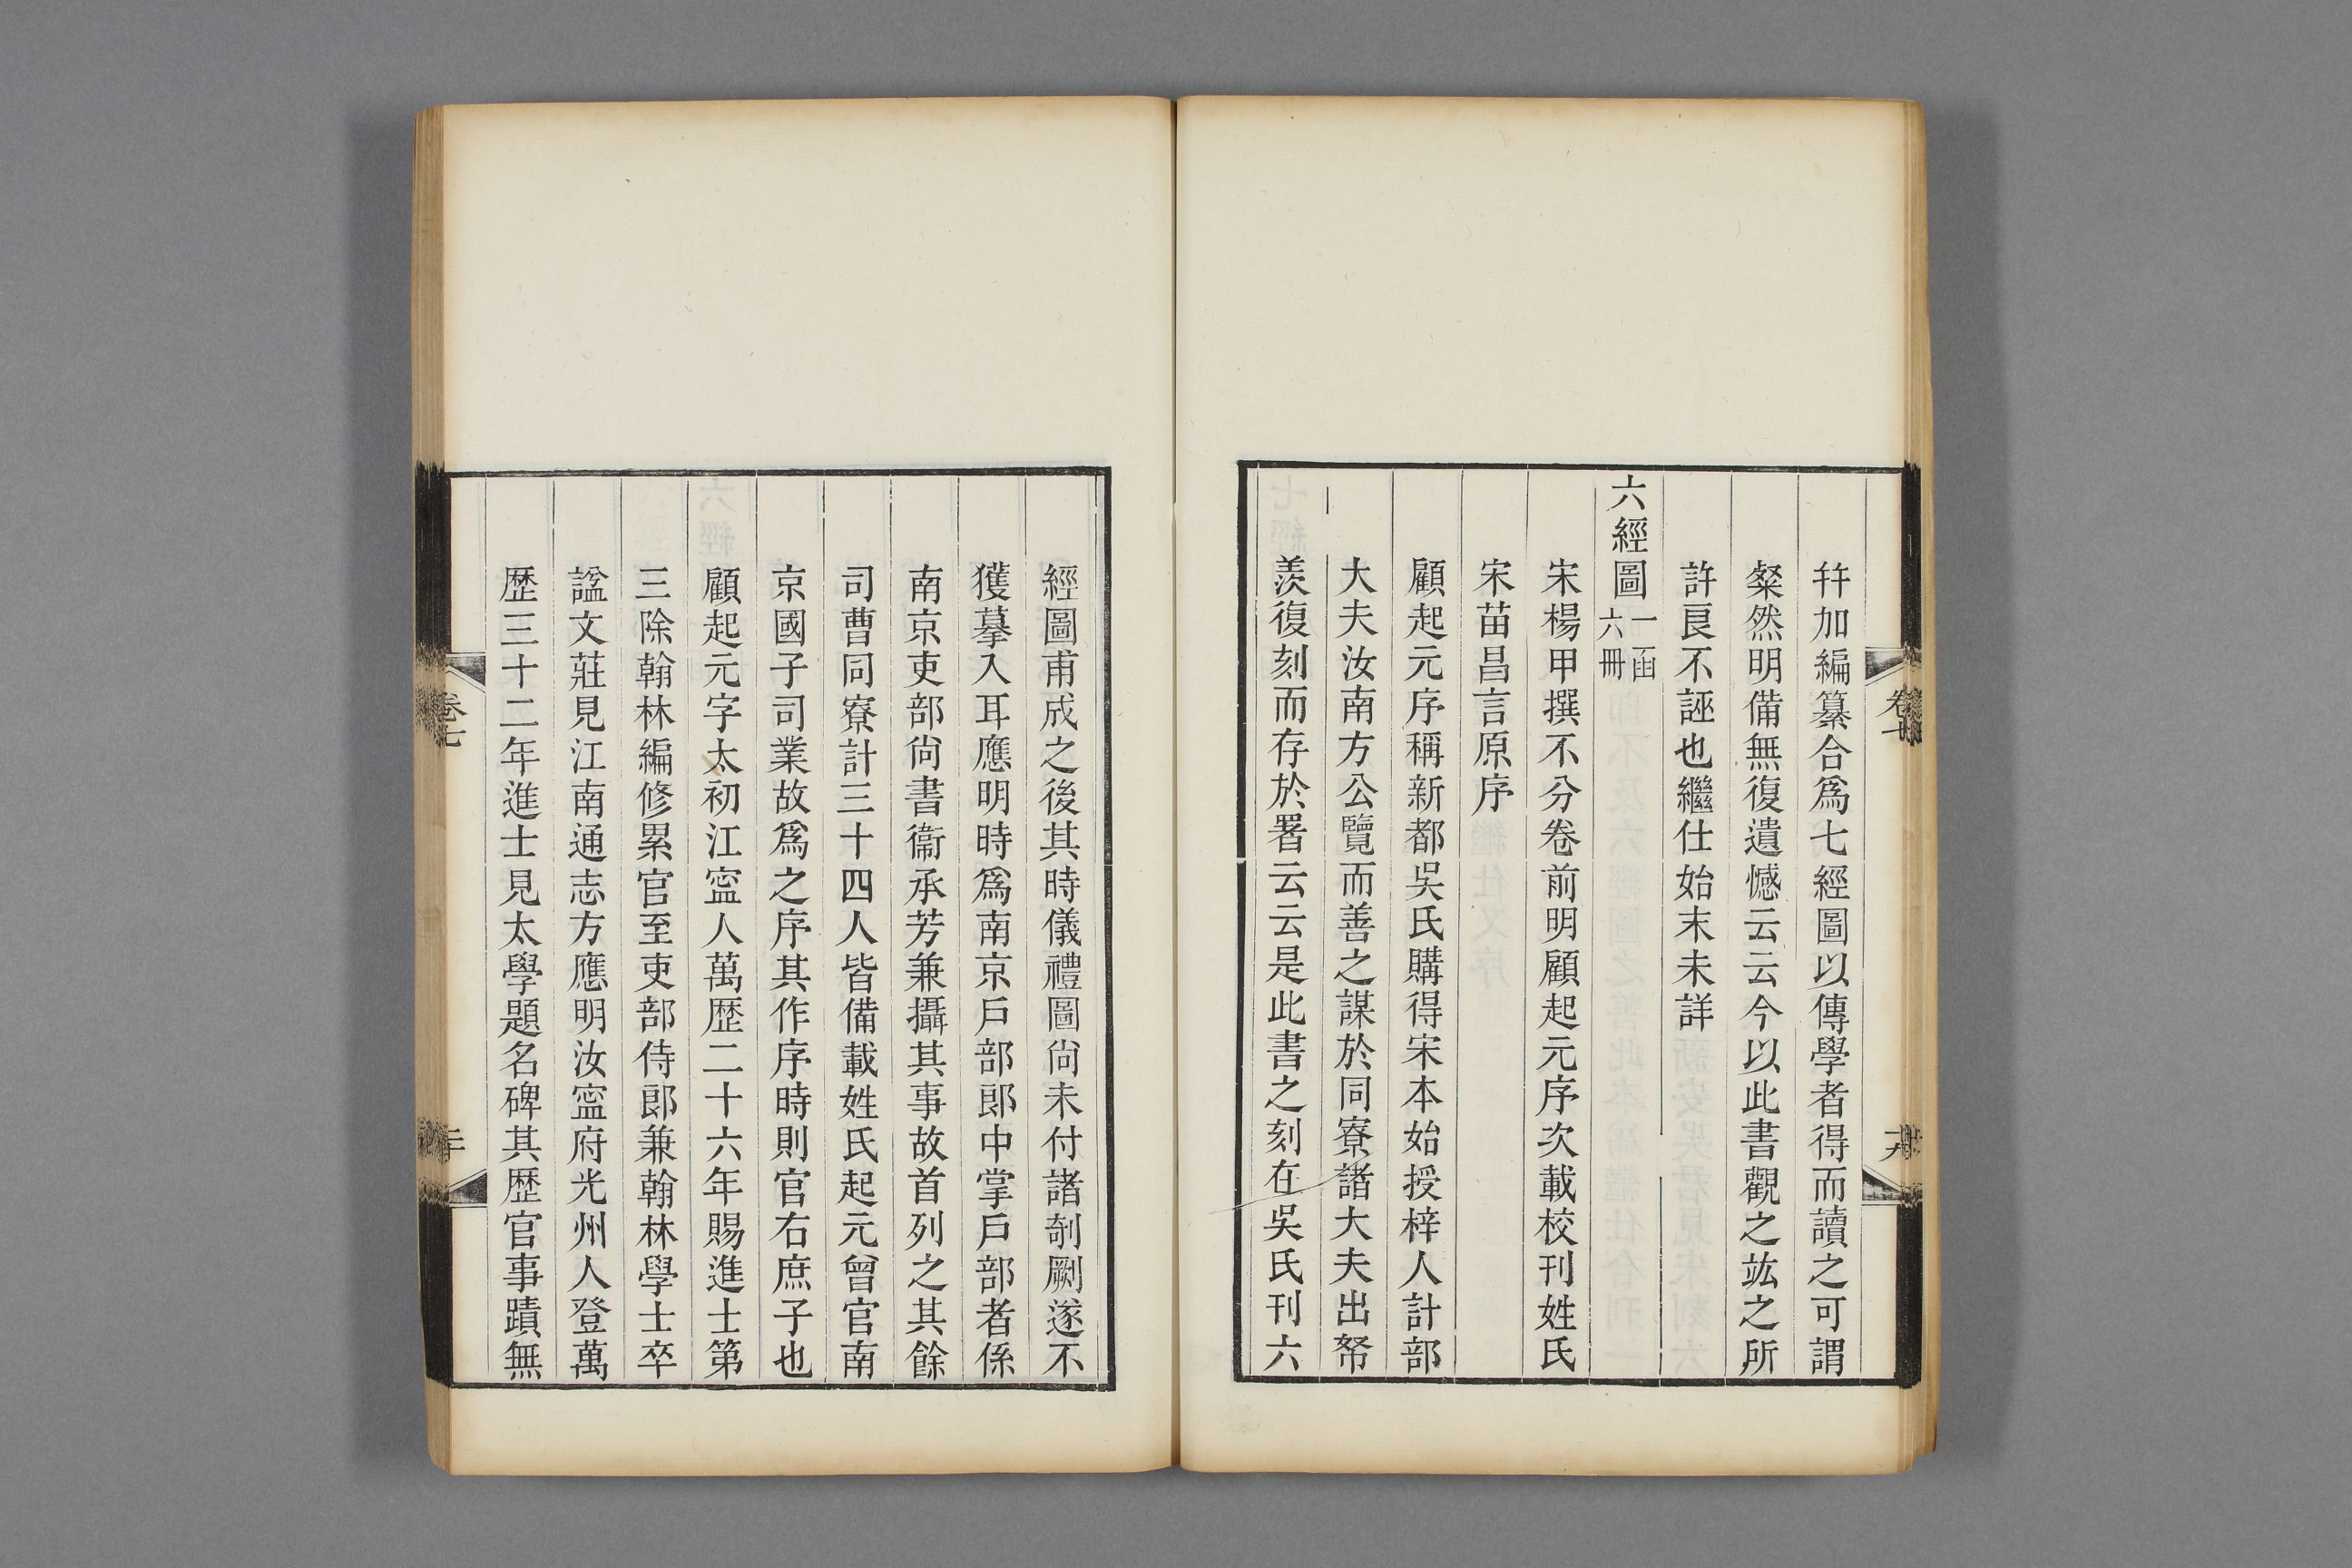 幷加編纂合爲七經圖以傳學者得而讀之可謂
粲然明備無復遺憾云云今以此書觀之竑之所
許良不誣也繼仕始末未詳
六經圖一函六冊
宋楊甲撰不分卷前明顧起元序次載校刊姓氏
宋苗昌言原序
顧起元序稱新都吳氏購得宋本始授梓人計部
大夫汝南方公覽而善之謀於同寮諸大夫出帑
羨復刻而存於署云云是此書之刻在吳氏刊六
經圖甫成之後其時儀禮圖尙未付諸剞劂遂不
獲摹入耳應明時爲南京戶部郎中掌戶部者係
南京吏部尙書衞承芳兼攝其事故首列之其餘
司曹同寮計三十四人皆備載姓氏起元曾官南
京國子司業故爲之序其作序時則官右庶子也
顧起元字太初江寍人萬歷二十六年賜進士第
三除翰林編修累官至吏部侍郎兼翰林學士卒
諡文莊見江南通志方應明汝寍府光州人登萬
歷三十二年進士見太學題名碑其歷官事蹟無
卷七
二十